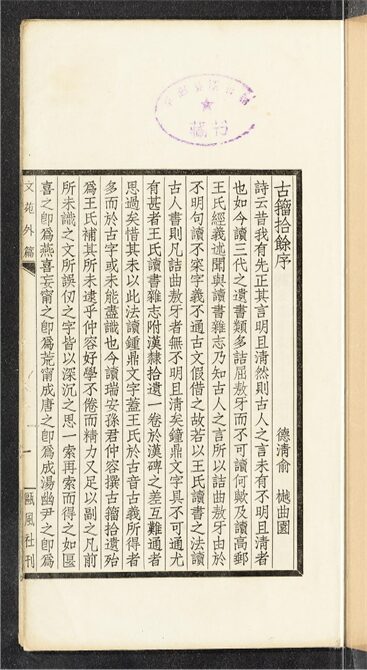 古籀拾餘序
德清俞 樾曲園
詩云昔我有先正其言明且清然則古人之言未有不明且清者
也如今讀三代之遺書類多詰屈敖牙而不可讀何歟及讀高郵
王氏經義述聞與讀書雜志乃知古人之言所以詰曲敖牙由於
不明句讀不寀字義不通古文假借之故若以王氏讀書之法讀
古人書則凡詰曲敖牙者無不明且清矣鐘鼎文字具不可通尤
有甚者王氏讀書雜志附漢隸拾遺一卷於漢碑之差互難通者
思過矣惜其未以此法讀鐘鼎文字蓋王氏於古音古義所得者
多而於古字或未能盡識也今讀瑞安孫君仲容撰古籀拾遺殆
爲王氏補其所未逮乎仲容好學不倦而精力又足以副之凡前
所未識之文所誤仞之字皆以深沉之思一索再索而得之如匽
喜之卽爲燕喜妄甯之卽爲荒甯成唐之卽爲成湯幽尹之卽爲
文苑外篇
一
甌風社刊